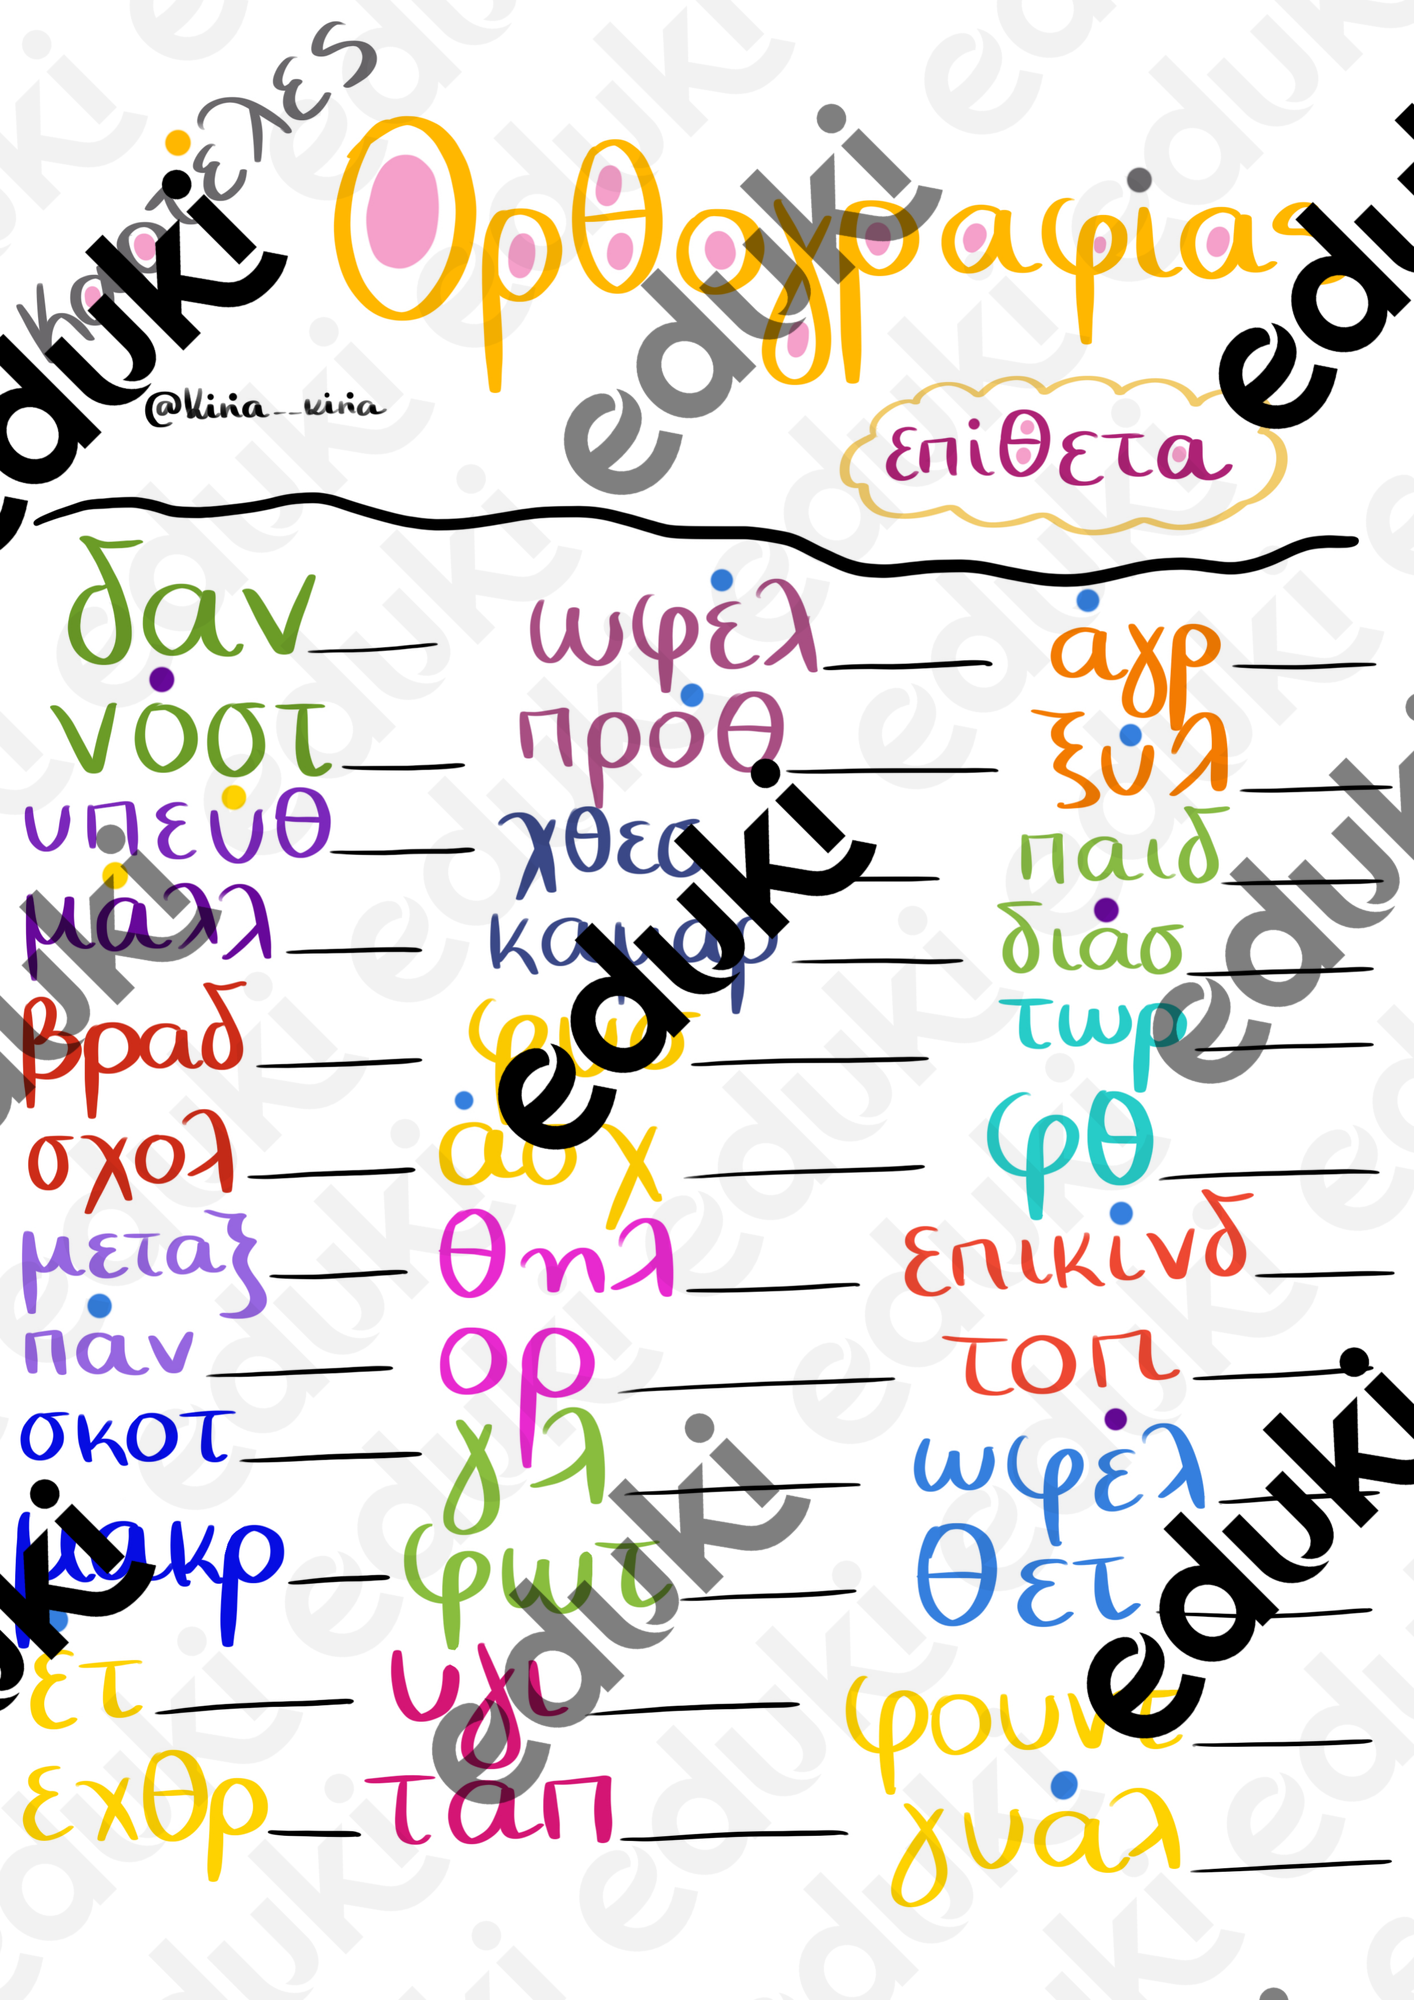 καρτέλες
Ορθογραφίας
@kiria__kiria
επίθετα
δαν___
νόστ___
υπεύθ___
μάλλ___
βραδ___
σχολ___
μεταξ___
πάν___
σκοτ___
μακρ___
έτ___
εχθρ___
ωφέλ___
πρόθ___
χθεσ___
καμαρ___
φυσ___
άσχ___
θηλ___
ορ___
γλ___
φωτ___
υγι___
ταπ___
άγρ___
ξύλ___
παιδ___
διάσ___
τωρ___
φθ___
επικίνδ___
τοπ___
ωφέλ___
θετ___
φουντ___
γυάλ___
eduki